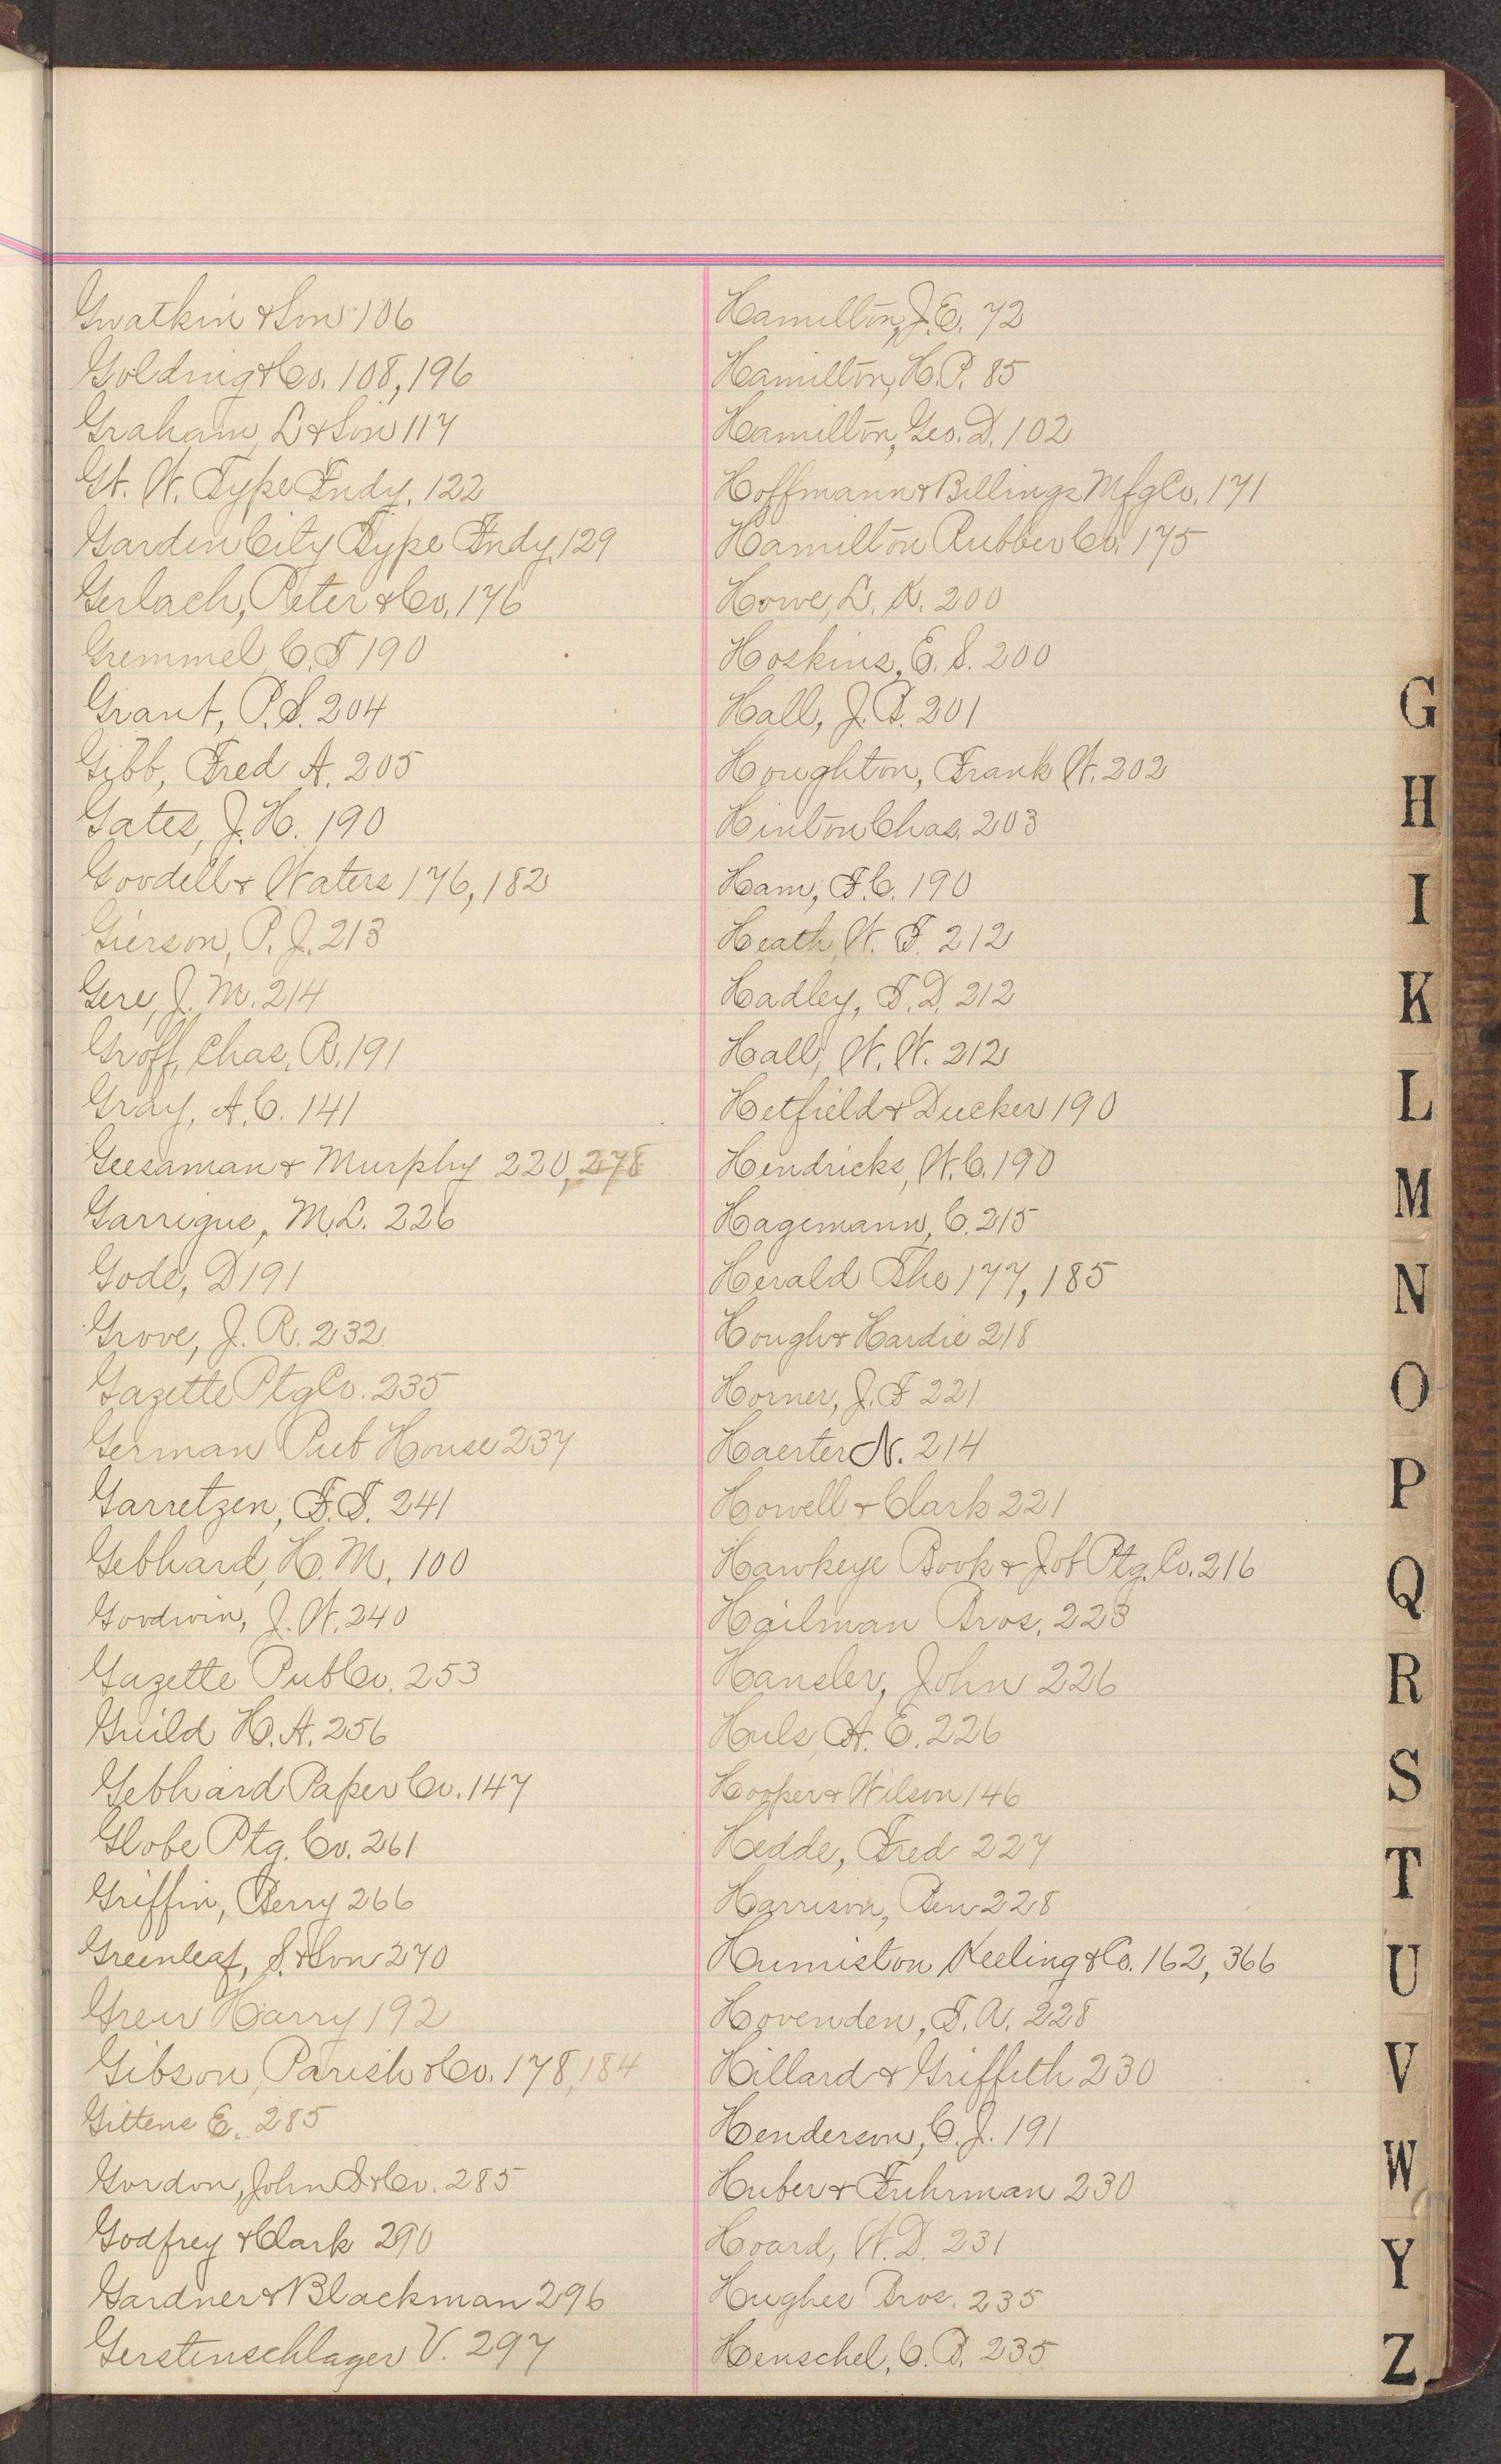 Gwatkin & Son 106
Golding & Co. 108, 196
Graham, L & Son 117
Gt. W. Type Fndy. 122
Garden City Type Fndy. 129
Gerlach, Peter & Co. 176
Gremmel, C. T 190
Grant, P. S. 204
Gibb, Fred A. 205
Gates, J. H. 190
Goodell & Waters 176, 182
Gierson, P. J. 213
Gere, J. M. 214
Groff, Chas. R. 191
Gray, A. C. 141
Geesaman & Murphy 220, 278
Garrigue, M. L. 226
Gode, D 191
Grove, J. R. 232
Gazette Ptg Co. 235
German Pub House 237
Garretzen, F. T. 241
Gebhard, H. M. 100
Goodwin, J. W. 240
Gazette Pub Co. 253
Guild H. A. 256
Gebhard Paper Co. 147
Globe Ptg. Co. 261
Griffin, Berry 266
Greenleaf, S. & Son 270
Greer Harry 192
Gibson, Parish & Co. 178, 184
Gittens E. 285
Gordon, John S & Co. 285
Godfrey & Clark 290
Gardner & Blackman 296
Gerstenschlager V. 297
Hamilton, J. E. 72
Hamilton, H. P. 85
Hamilton, Geo. D. 102
Hoffmann & Billings Mfg Co. 171
Hamilton Rubber Co. 175
Howe, L. K. 200
Hoskins, E. S. 200
Hall, J. B. 201
Houghton, Frank W. 202
Hinton Chas. 203
Ham, F. C. 190
Heath, W. F. 212
Hadley, T. D. 212
Hall, W. W. 212
Hetfield & Ducker 190
Hendricks, W. C. 190
Hagemann, C. 215
Herald The 177, 185
Hough & Hardie 218
Horner, J. F 221
Haerter N. 214
Howell & Clark 221
Hawkeye Book & Job Ptg. Co. 216
Hailman Bros. 223
Hansler, John 226
Huls, A. E. 226
Hooper & Wilson 146
Hedde, Fred 227
Harrison, Ben 228
Humiston Keeling & Co. 162, 366
Hovenden, T. A. 228
Hillard & Griffith 230
Henderson, C. J. 191
Huber & Fuhrman 230
Hoard, W. D. 231
Hughes Bros. 235
Henschel, C. B. 235
G
H
I
K
L
M
N
O
P
Q
R
S
T
U
V
W
Y
Z